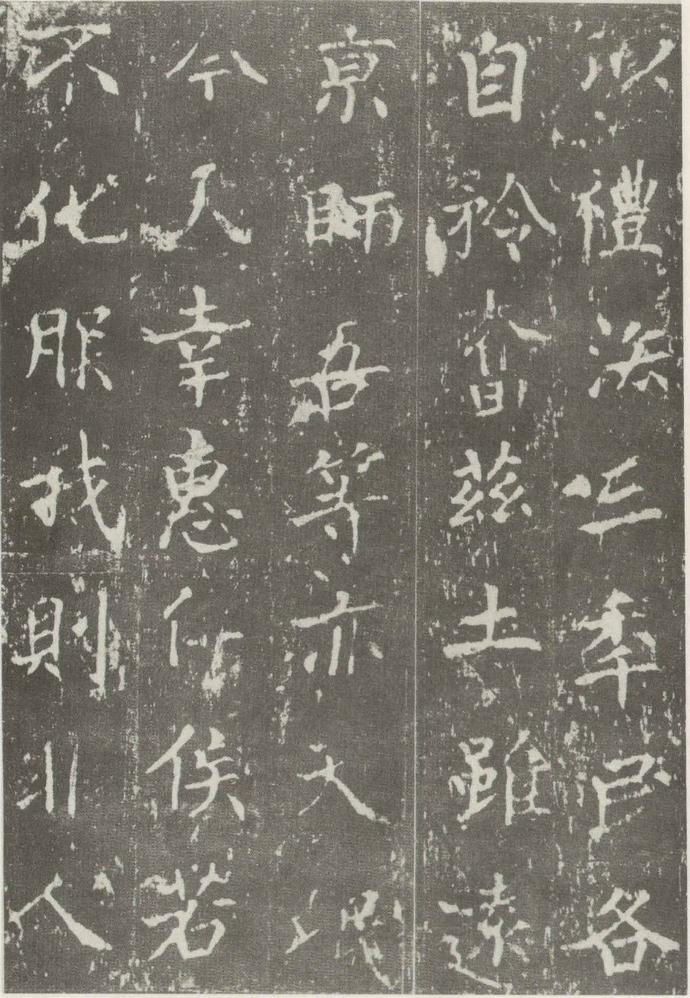 以禮法三年民各
自矜奮茲土雖遠
京師吾等亦天氓
今天幸惠仁侯若
不化服我則非人